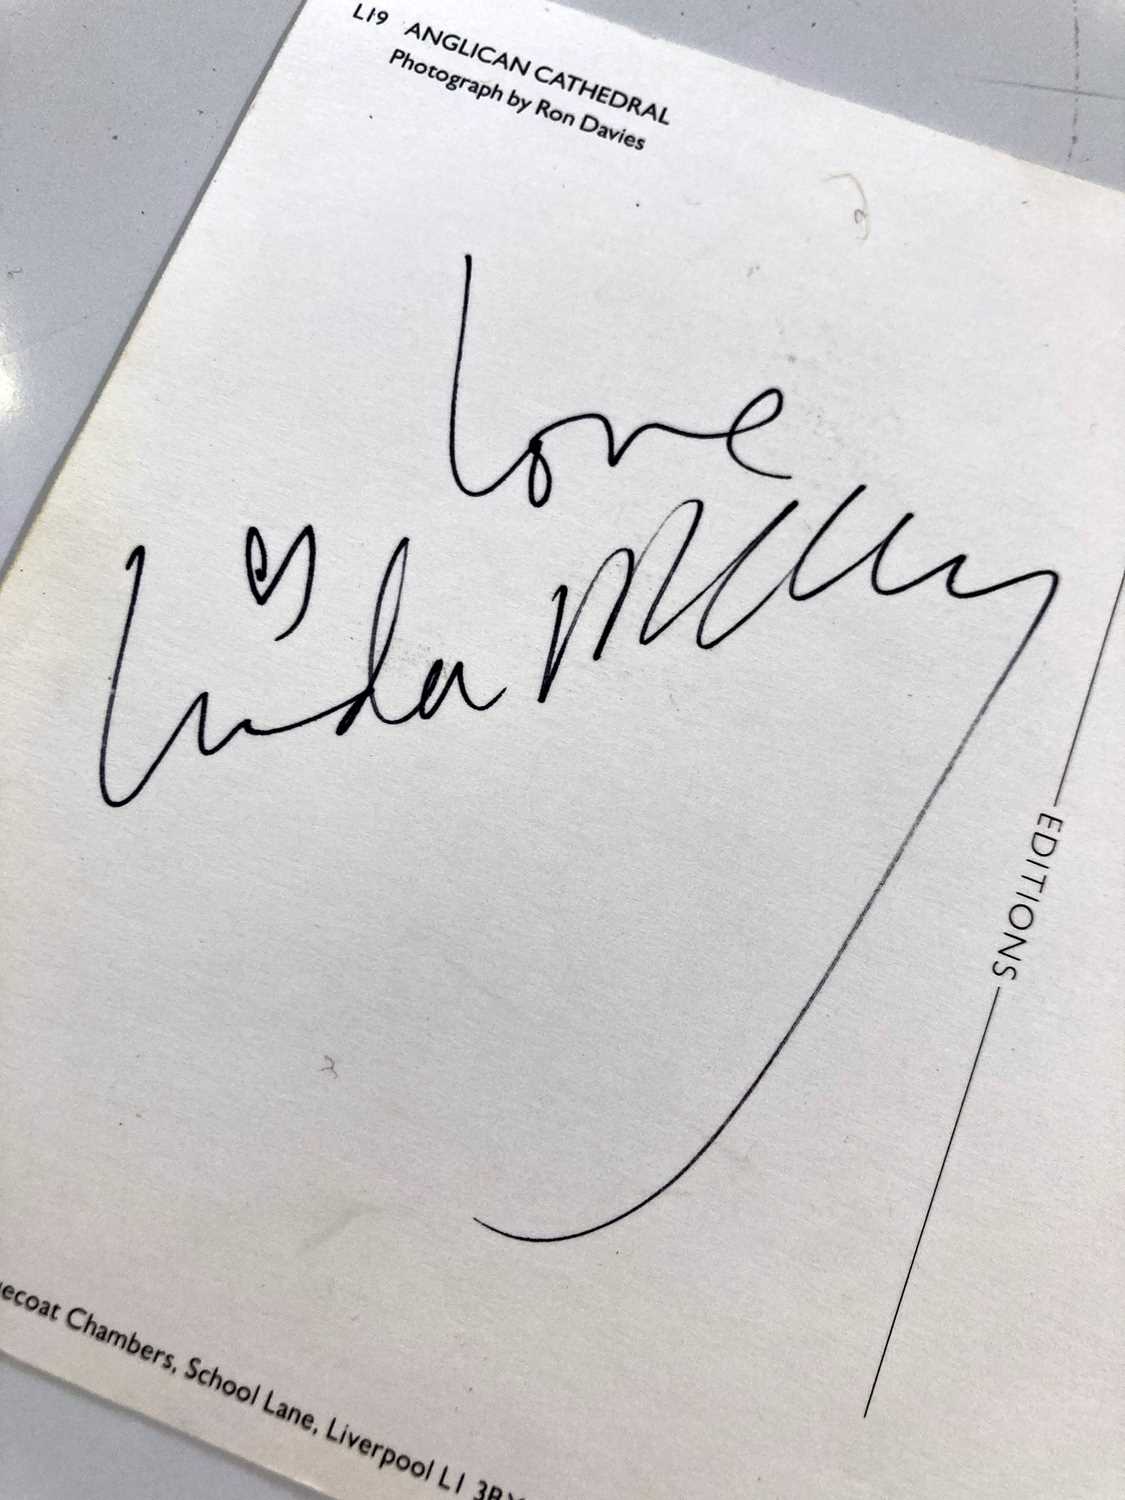 L19 ANGLICAN CATHEDRAL
Photograph by Ron Davies
Love
Linda
EDITIONS
Chambers, School Lane, Liverpool L1